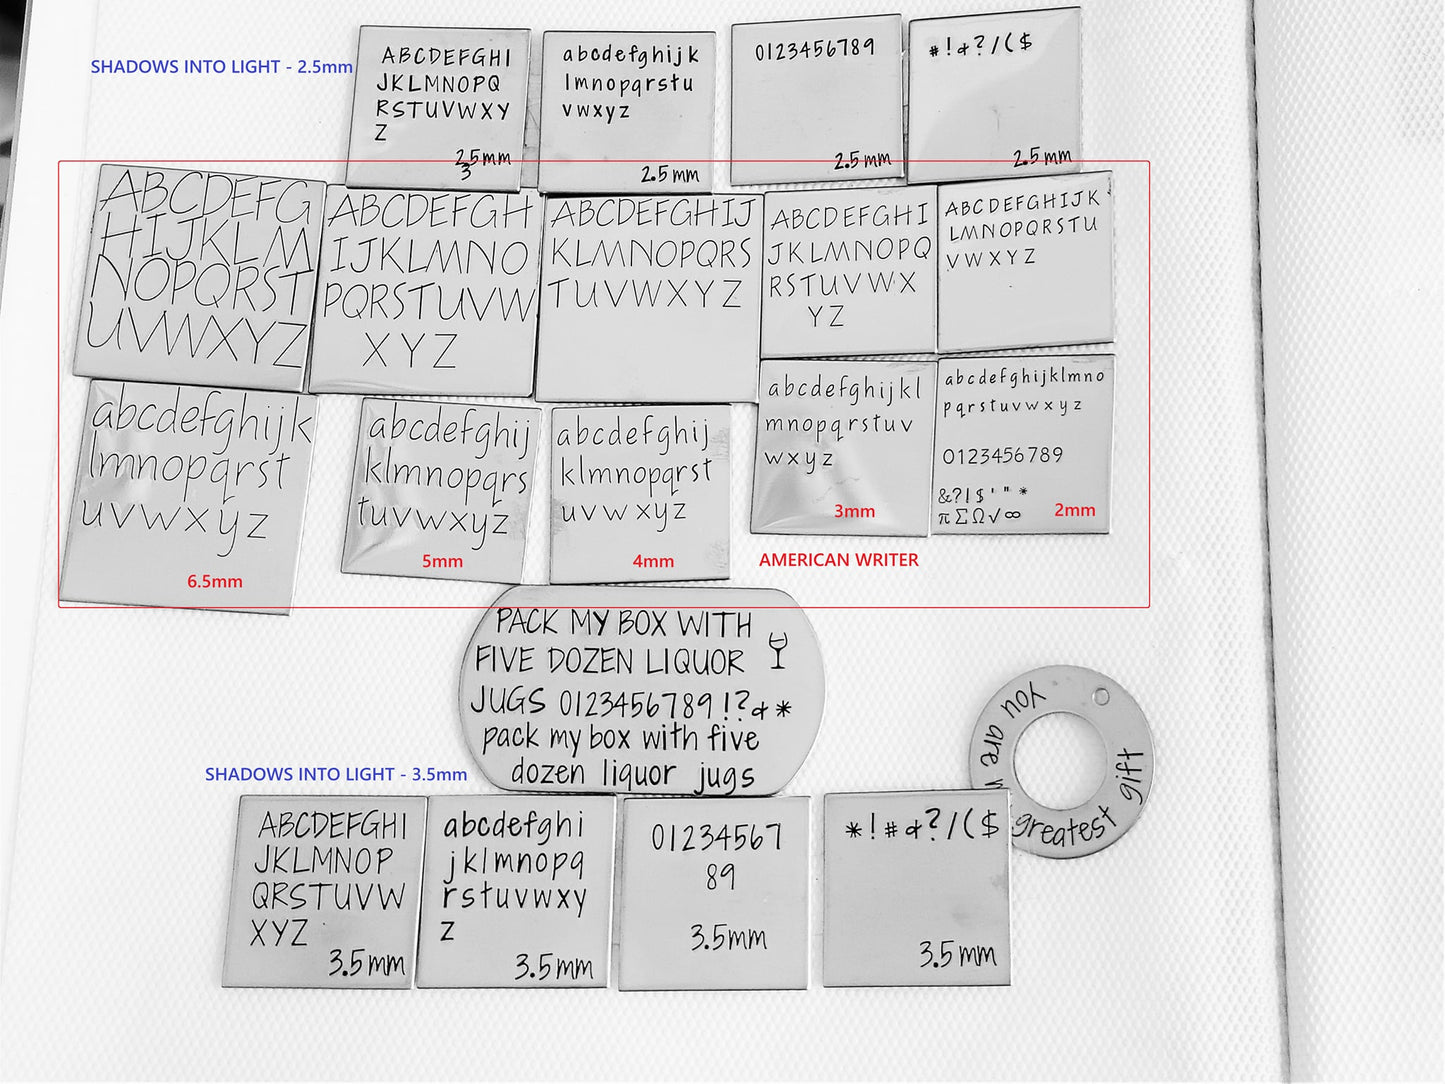 SHADOWS INTO LIGHT - 2.5mm
ABCDEFGHI
JKLMNOPQ
RSTUVWXY
Z
2.5mm
3
abcdefghijk
lmnopqrstu
vwxyz
2.5mm
0123456789
2.5mm
*!&?/($
2.5mm
ABCDEFG
HIJKLM
NOPQRST
UVWXYZ
ABCDEFGH
IJKLMNO
PQRSTUVW
XYZ
ABCDEFGHIJ
KLMNOPQRS
TUVWXYZ
ABCDEFGHI
JKLMNOPQ
RSTUVWX
YZ
ABCDEFGHIJK
LMNOPQRSTU
VWXYZ
abcdefghijk
lmnopqrst
uvwxyz
6.5mm
abcdefghij
klmnopqrs
tuvwxyz
5mm
abcdefghij
klmnopqrst
uvwxyz
4mm
abcdefghijkl
mnopqrstuv
wxyz
3mm
abcdefghijklmno
pqrstuvwxyz
0123456789
&?!$'"*
πΣΩ√∞
2mm
AMERICAN WRITER
PACK MY BOX WITH
FIVE DOZEN LIQUOR
JUGS 0123456789!?&*
pack my box with five
dozen liquor jugs
You are
greatest gift
SHADOWS INTO LIGHT - 3.5mm
ABCDEFGHI
JKLMNOP
QRSTUVW
XYZ
3.5mm
abcdefghi
jklmnopq
rstuvwxy
z
3.5mm
01234567
89
3.5mm
*!#&?/($
3.5mm